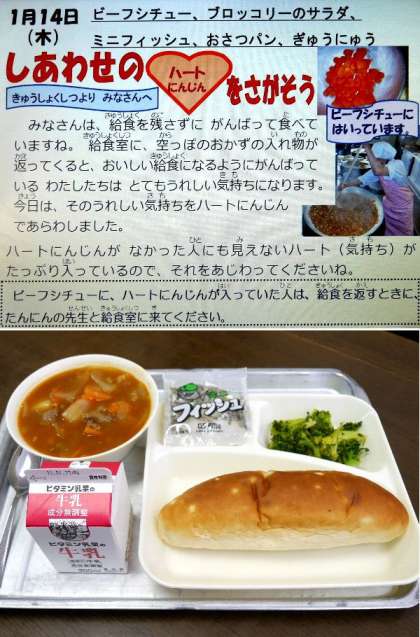 1月14日
(木)
ビーフシチュー、ブロッコリーのサラダ、
ミニフィッシュ、おさつパン、ぎゅうにゅう
しあわせの
ハート
にんじん
をさがそう
きゅうしょくしつより みなさんへ
ビーフシチューに
はいっています。
みなさんは、給食を残さずに がんばって食べて
いますね。給食室に、空っぽのおかずの入れ物が
返ってくると、おいしい給食になるようにがんばって
いる わたしたちは とてもうれしい気持ちになります。
今日は、そのうれしい気持ちをハートにんじん
であらわしました。
ハートにんじんが なかった人にも見えないハート（気持ち）が
たっぷり入っているので、それをあじわってくださいね。
ビーフシチューに、ハートにんじんが入っていた人は、給食を返すときに
たんにんの先生と給食室に来てください。
フィッシュ
ビタミン乳業の
牛乳
成分無調整
ビタミン乳業の
牛乳